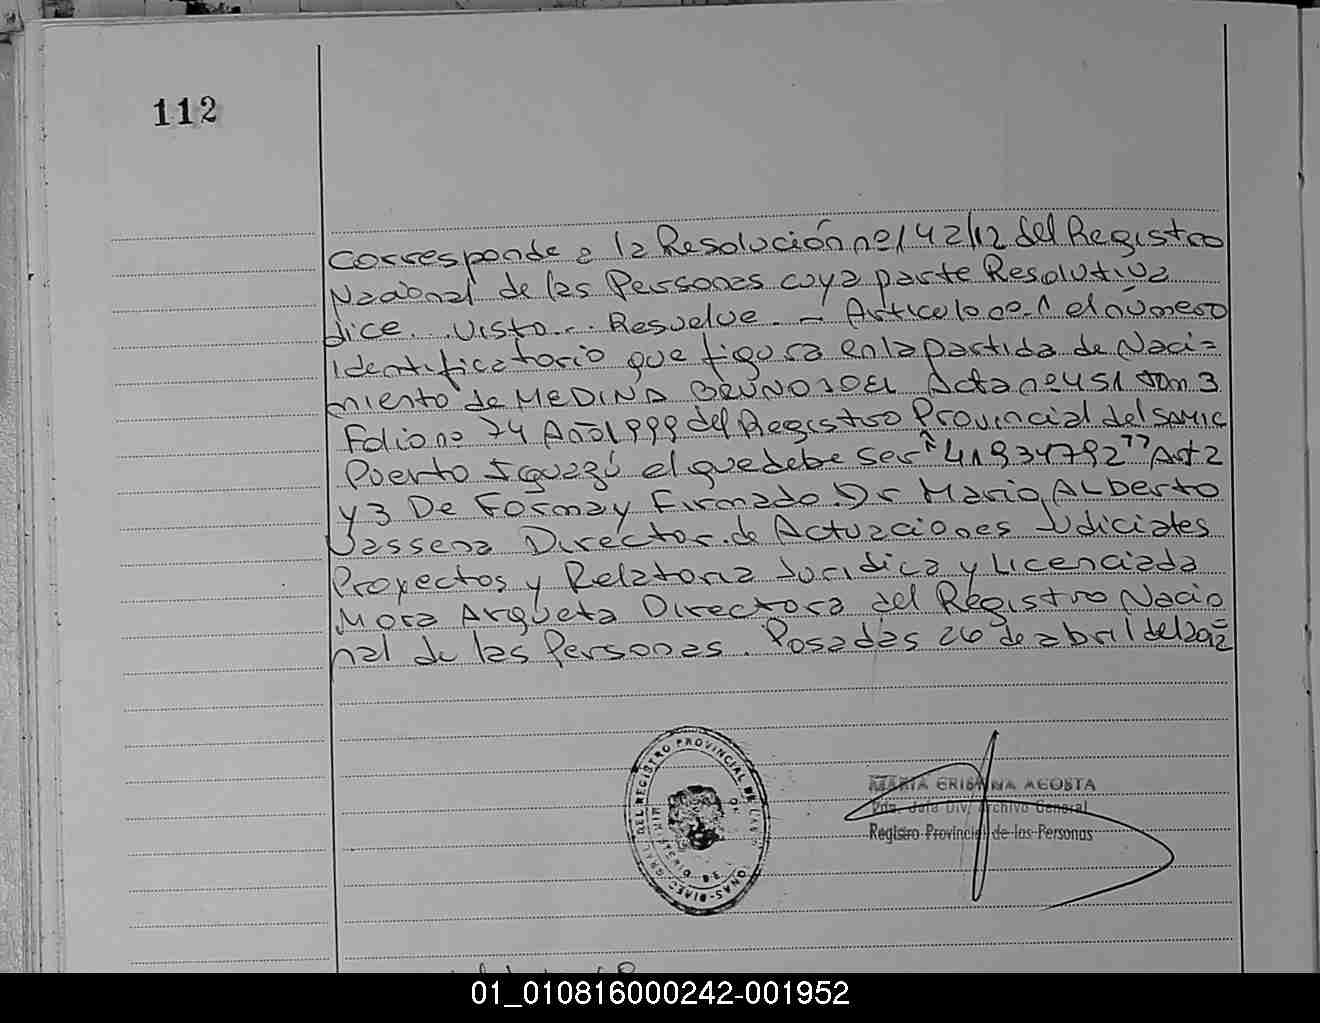 112
Corresponde a la Resolución nº 142/12 del Registro
Nacional de las Personas cuya parte Resolutiva
dice. Visto... Resuelve. - Articulo nº 1 el número
Identificatorio que figura en la partida de Naci=
miento de MEDINA BRUNO JOEL Acta nº 451 tom 3
Folio nº 74 Año 1999 del Registro Provincial del SAMIC
Puerto Iguazú el que debe ser "41934792" Art 2
y 3 De Forma y Firmado Dr Mario ALBerto
Director de Actuaciones Judiciales
Proyectos y Relatoria Juridica y Licenciada
Mora Arqueta Directora del Registro Nacio
nal de las Personas. Posadas 26 de abril del 2012
DEL REGISTRO PROVINCIAL DE LAS
MARIA CRISTINA ACOSTA
Jefa Div. Archivo General
Registro Provincial de las Personas
01_010816000242-001952